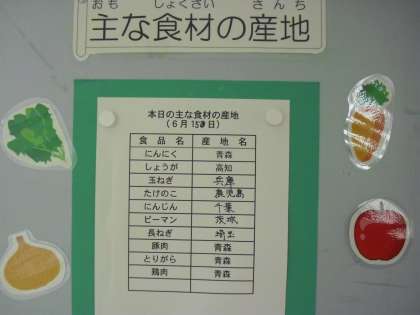 おも しょくざい さんち
主な食材の産地
本日の主な食材の産地
(6月15日)
食品名 産地名
にんにく 青森
しょうが 高知
玉ねぎ 兵庫
たけのこ 鹿児島
にんじん 千葉
ピーマン 茨城
長ねぎ 埼玉
豚肉 青森
とりがら 青森
鶏肉 青森